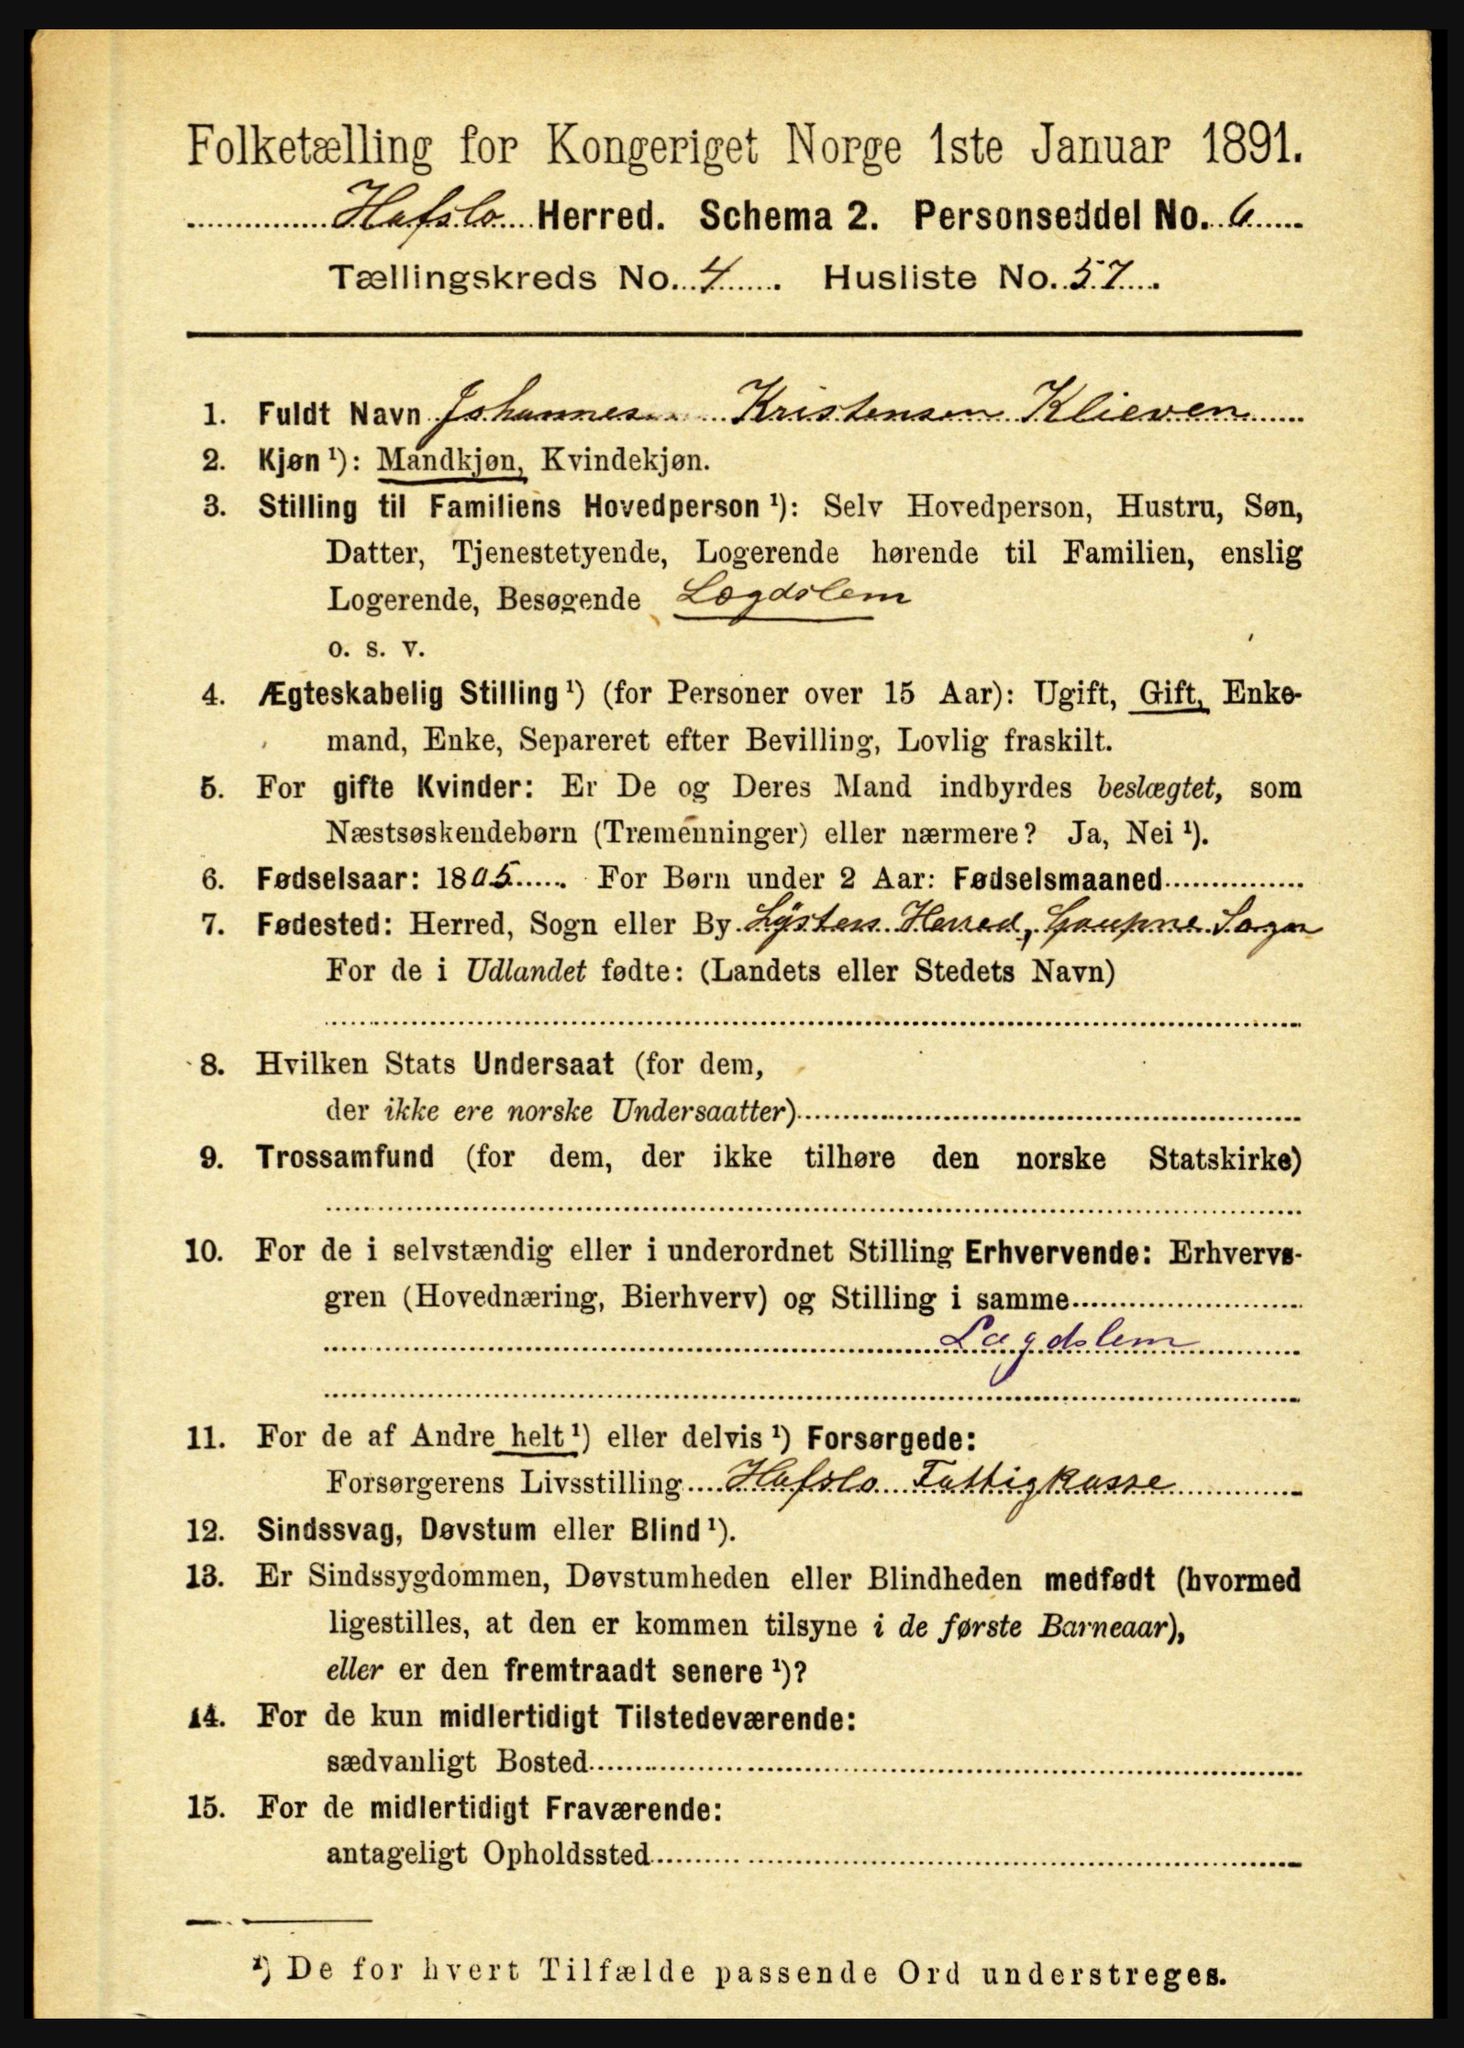 Folketælling for Kongeriget Norge 1ste Januar 1891.
Hafslo Herred. Schema 2. Personseddel No. 6
Tællingskreds No. 4. Husliste No. 57.
1. Fuldt Navn Johannes Kristensen Klieven
2. Kjøn ¹): Mandkjøn, Kvindekjøn.
3. Stilling til Familiens Hovedperson ¹): Selv Hovedperson, Hustru, Søn,
Datter, Tjenestetyende, Logerende hørende til Familien, enslig
Logerende, Besøgende Lægdslem
o. s. v.
4. Ægteskabelig Stilling ¹) (for Personer over 15 Aar): Ugift, Gift, Enke-
mand, Enke, Separeret efter Bevilling, Lovlig fraskilt.
5. For gifte Kvinder: Er De og Deres Mand indbyrdes beslægtet, som
Næstsøskendebørn (Tremenninger) eller nærmere? Ja, Nei ¹).
6. Fødselsaar: 1805. For Børn under 2 Aar: Fødselsmaaned
7. Fødested: Herred, Sogn eller By Lÿster Herred, Gaupne Sogn
For de i Udlandet fødte: (Landets eller Stedets Navn)
8. Hvilken Stats Undersaat (for dem,
der ikke ere norske Undersaatter)
9. Trossamfund (for dem, der ikke tilhøre den norske Statskirke)
10. For de i selvstændig eller i underordnet Stilling Erhvervende: Erhvervs-
gren (Hovednæring, Bierhverv) og Stilling i samme
Lægdslem
11. For de af Andre helt ¹) eller delvis ¹) Forsørgede:
Forsørgerens Livsstilling Hafslo Fattigkasse
12. Sindssvag, Døvstum eller Blind ¹).
13. Er Sindssygdommen, Døvstumheden eller Blindheden medfødt (hvormed
ligestilles, at den er kommen tilsyne i de første Barneaar),
eller er den fremtraadt senere ¹)?
14. For de kun midlertidigt Tilstedeværende:
sædvanligt Bosted
15. For de midlertidigt Fraværende:
antageligt Opholdssted
¹) De for hvert Tilfælde passende Ord understreges.